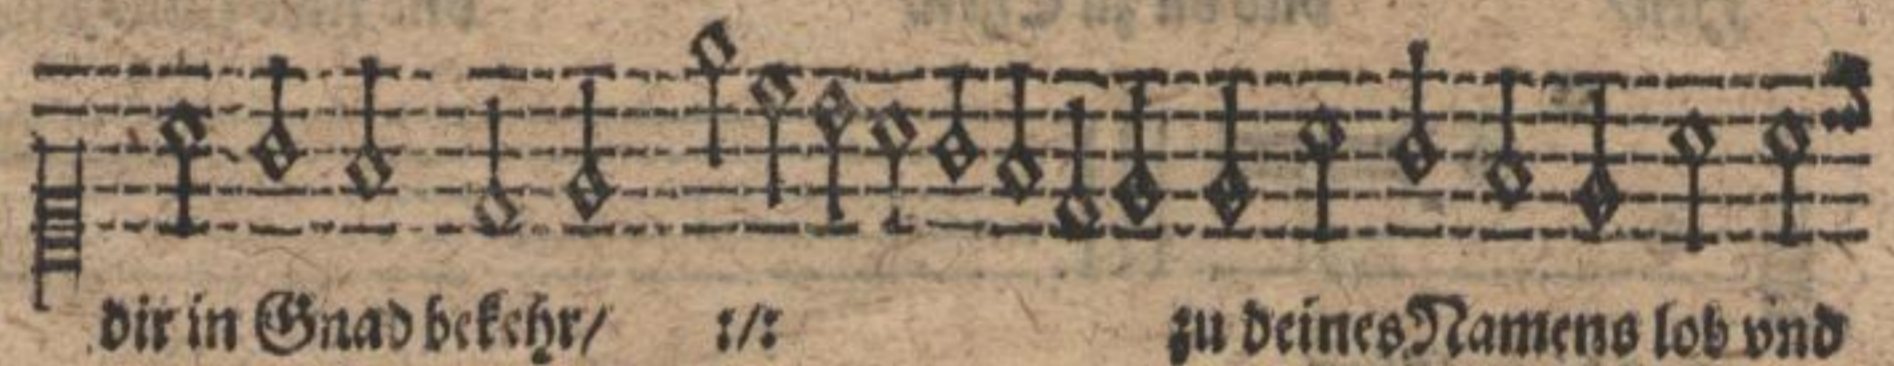 dir in Gnad bekehr/ :/: zu deines Namens lob vnd